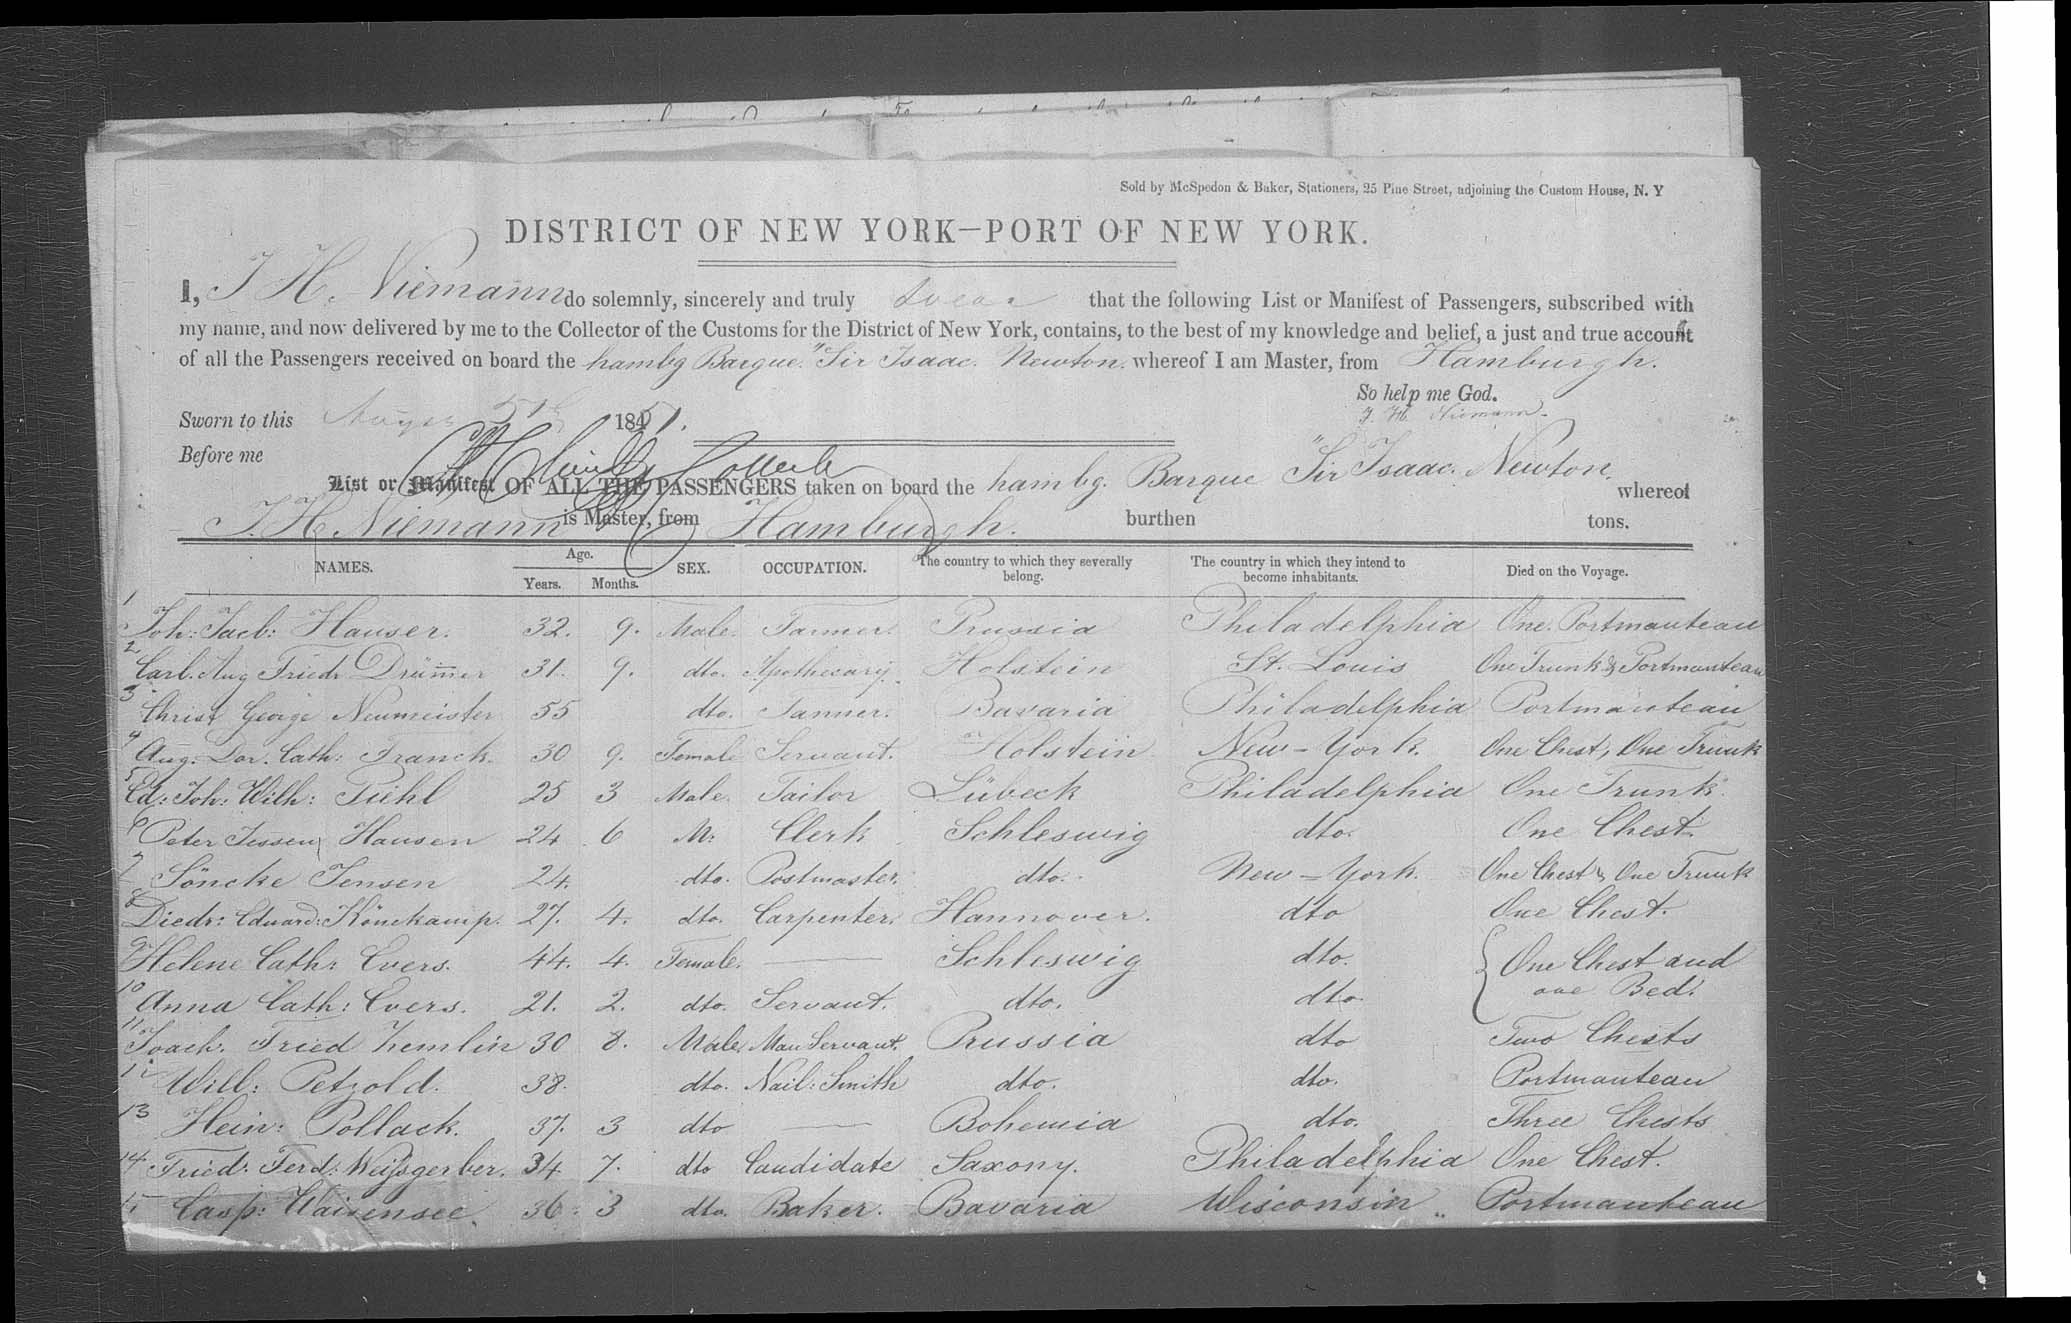 Sold by McSpedon & Baker, Stationers, 25 Pine Street, adjoining the Custom House, N. Y
DISTRICT OF NEW YORK—PORT OF NEW YORK.
I, J H. Niemann do solemnly, sincerely and truly swear that the following List or Manifest of Passengers, subscribed with
my name, and now delivered by me to the Collector of the Customs for the District of New York, contains, to the best of my knowledge and belief, a just and true account
of all the Passengers received on board the hambg Barque. "Sir Isaac. Newton. whereof I am Master, from Hamburgh.
So help me God.
J. H. Niemann.
Sworn to this 1851.
Before me
List or Manifest OF ALL THE PASSENGERS taken on board the hambg. Barque "Sir Isaac. Newton. whereof
J. H Niemann is Master, from Hamburgh. burthen tons.
NAMES. Age. Years. Months. SEX. OCCUPATION. The country to which they severally belong. The country in which they intend to become inhabitants. Died on the Voyage.
1 Joh: Jacb: Hauser. 32. 9. Male. Tanner. Prussia Philadelphia One Portmanteau
2 Carl. Aug Friedr Drümer 31. 9. dto. Apothecary. Holstein St. Louis One Trunk & Portmanteau
3 Christ George Neumeister 55 dto. Tanner. Bavaria Philadelphia Portmanteau
4 Aug: Dor. Cath: Franck. 30 9. Female Servant. Holstein New-York. One Chest, One Trunk
5 Ed: Joh: Wilh: Piehl 25 3 Male. Tailor Lübeck Philadelphia One Trunk.
6 Peter Jessen Hansen 24 6 M: Clerk Schleswig dto. One Chest.
7 Söncke Jensen 24. dto. Postmaster. dto. New-York. One Chest & One Trunk
8 Diedr: Eduard: Könekamp. 27. 4. dto. Carpenter. Hannover. dto One Chest.
9 Helene Cath: Evers. 44. 4. Female. — Schleswig dto. One Chest and
10 Anna Cath: Evers. 21. 2. dto. Servant. dto. dto one Bed.
11 Joach. Fried Zemlin 30 8. Male. Man Servant. Prussia dto Two Chests
12 Will: Petzold. 38. dto. Nail: Smith dto. dto. Portmanteau
13 Hein: Pollack. 37. 3 dto — Bohemia dto. Three Chests
14 Fried: Ferd: Weißgerber. 34 7. dto Candidate Saxony. Philadelphia One Chest.
15 Casp: Waisensee. 36. 3 dto. Baker. Bavaria Wisconsin .. Portmanteau